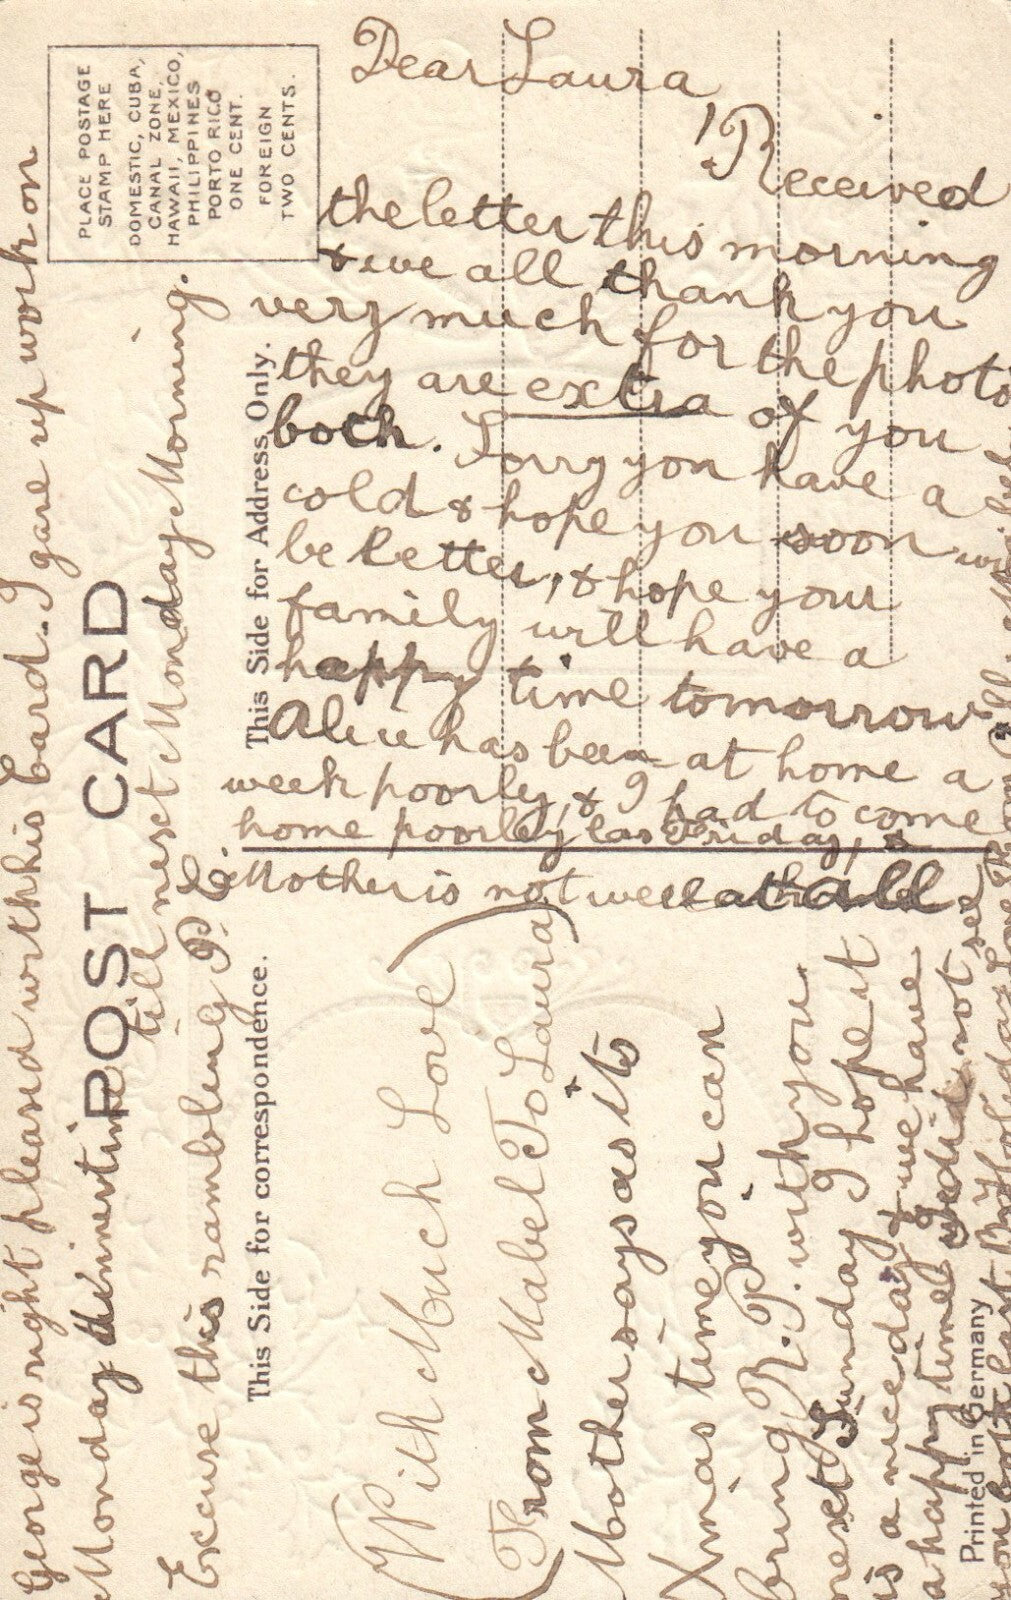 Dear Laura
I Received
the letter this morning
& we all thank you
very much for the photo
they are extra of you
both. Sorry you have a
cold & hope you soon will
be better, & hope your
family will have a
happy time tomorrow
Alice has been at home a
week poorly, & I had to come
home poorley las Friday, &
Mother is not well at all
With Much Love
From Mabel To Laura
Mother says as its
Xmas time you can
bring R. P. with you
next Sunday I hope it
is a nice day & we have
a happy time I did not see
you both last B Holiday Love From All
George is right pleased with his Card. I gave up work on
Monday dinnertime till next Monday Morning.
Excuse this rambling P.C.
POST CARD
This Side for correspondence.
This Side for Address Only.
PLACE POSTAGE
STAMP HERE
DOMESTIC, CUBA,
CANAL ZONE,
HAWAII, MEXICO,
PHILIPPINES
PORTO RICO
ONE CENT.
FOREIGN
TWO CENTS.
Printed in Germany